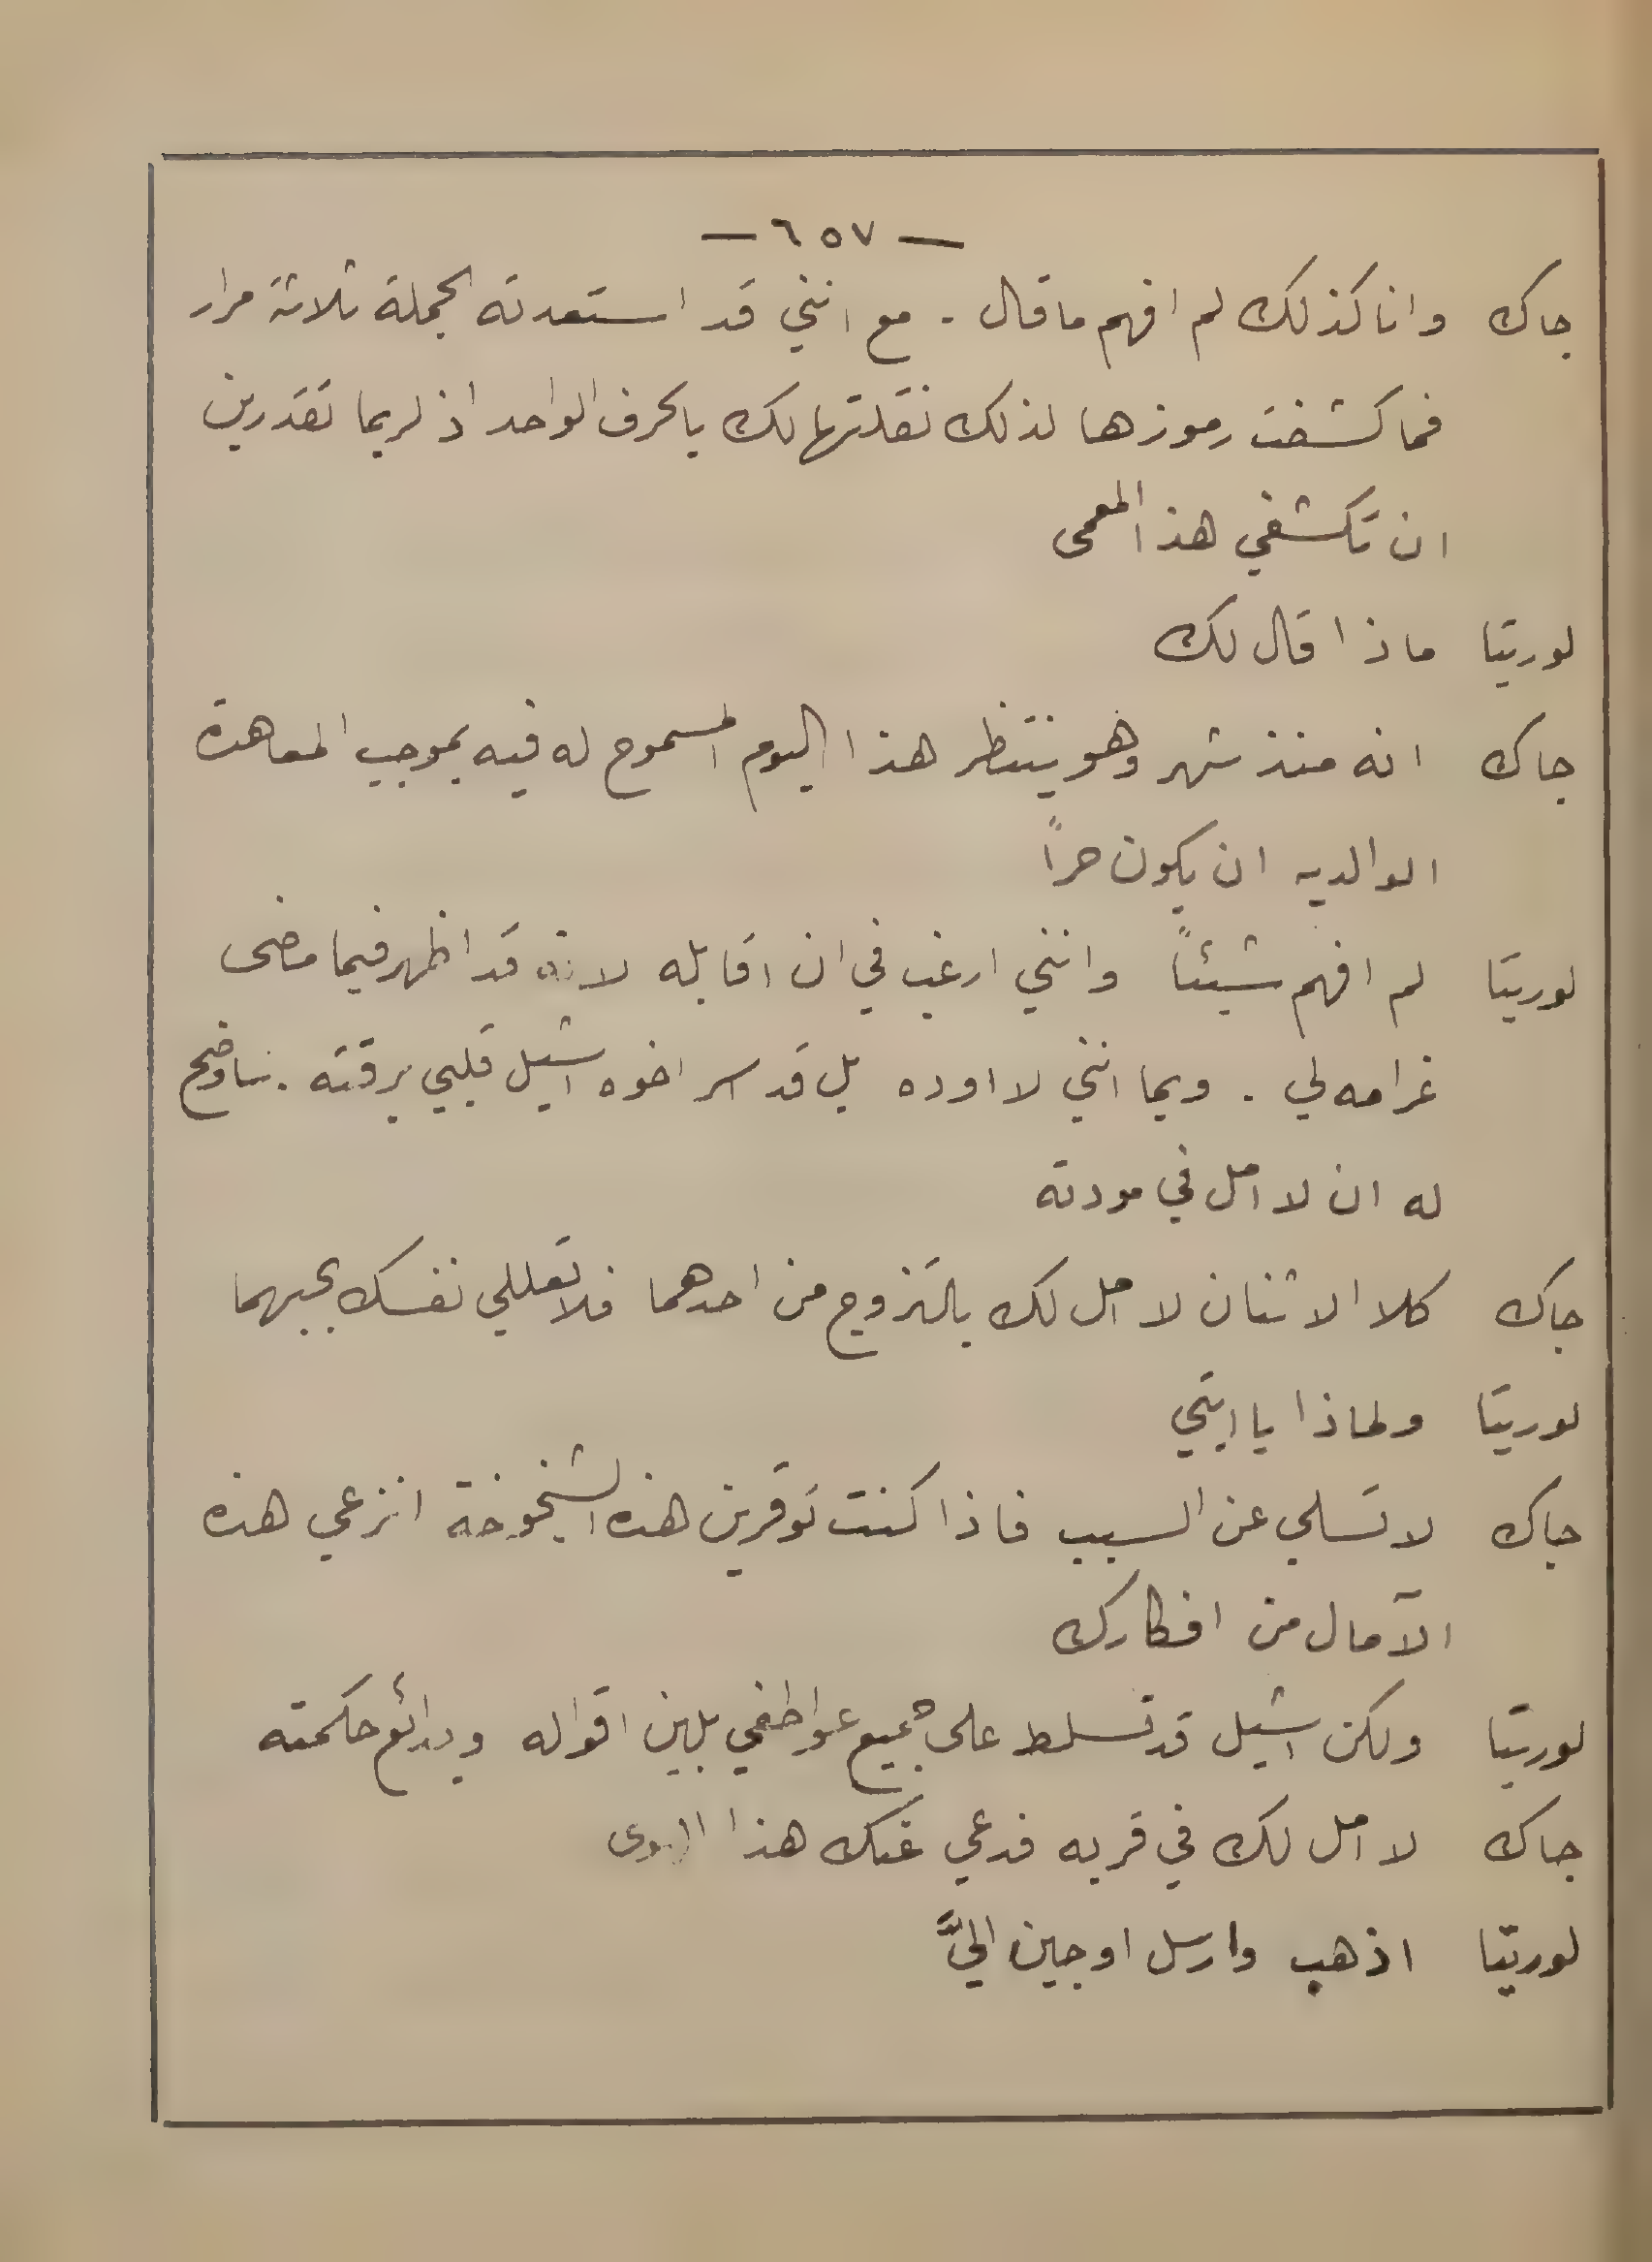 — ٦٥٧ —
جاك وانا كذلك لم افهم ما قال . مع انني قد استعدته الجملة ثلاثة مرار
فما كشفت رموزها لذلك نقلتها لك بالحرف الواحد اذ لربما تقدرين
ان تكشفي هذا المعمى
لوريتا ماذا قال لك
جاك انه منذ شهر وهو ينتظر هذا اليوم المسموح له فيه بموجب المعاهدة
الوالديه ان يكون حراً
لوريتا لم افهم شيئاً وانني ارغب في ان اقابله لانه قد اظهر فيما مضى
غرامه لي . وبما انني لا اوده بل قد اسر اخوه اشيل قلبي برقته . ساوضح
له ان لا امل في مودته
جاك كلا الاثنان لا امل لك بالتزوج من احدهما فلا تعللي نفسك بحبهما
لوريتا ولماذا يا ابتي
جاك لا تسلي عن السبب فاذا كنت توقرين هذه الشيخوخة انزعي هذه
الآمال من افكارك
لوريتا ولكن اشيل قد تسلط على جميع عواطفي بلين اقواله وبدائع حكمته
جاك لا امل لك في قربه فدعي عنك هذا الهوى
لوريتا اذهب وارسل اوجين اليَّ